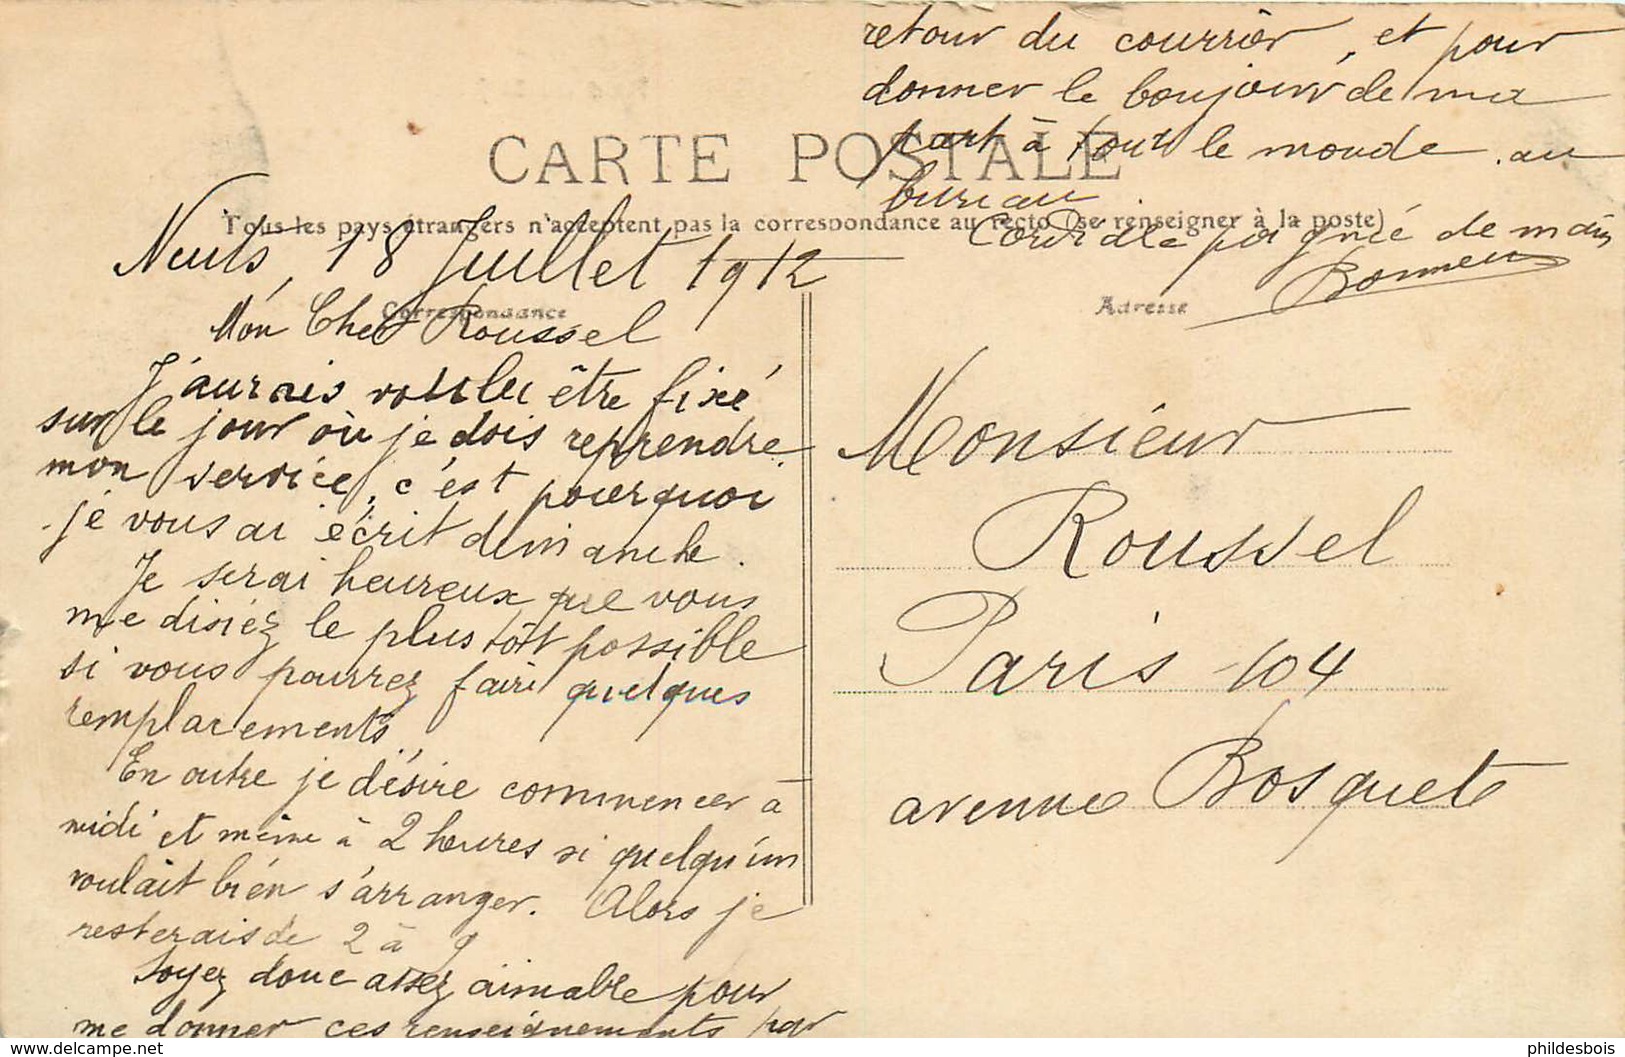 CARTE POSTALE
Tous les pays étrangers n'acceptent pas la correspondance au recto (se renseigner à la poste)
Correspondance
Adresse
Nuits, 18 Juillet 1912
Mon Cher Roussel
J'aurais voulu être fixé
sur le jour où je dois reprendre
mon service, c'est pourquoi
je vous ai écrit dimanche.
Je serai heureux que vous
me disiez le plus tôt possible
si vous pourrez faire quelques
remplacements
En outre je désire commencer à
midi et même à 2 heures si quelqu'un
voulait bien s'arranger. Alors je
resterais de 2 à 9
Soyez donc assez aimable pour
me donner ces renseignements par
retour du courrier, et pour
donner le boujour de ma
part à tout le monde au
bureau
Cordiale poignée de main
Monsieur
Roussel
Paris 104
avenue Bosquet
phildesbois